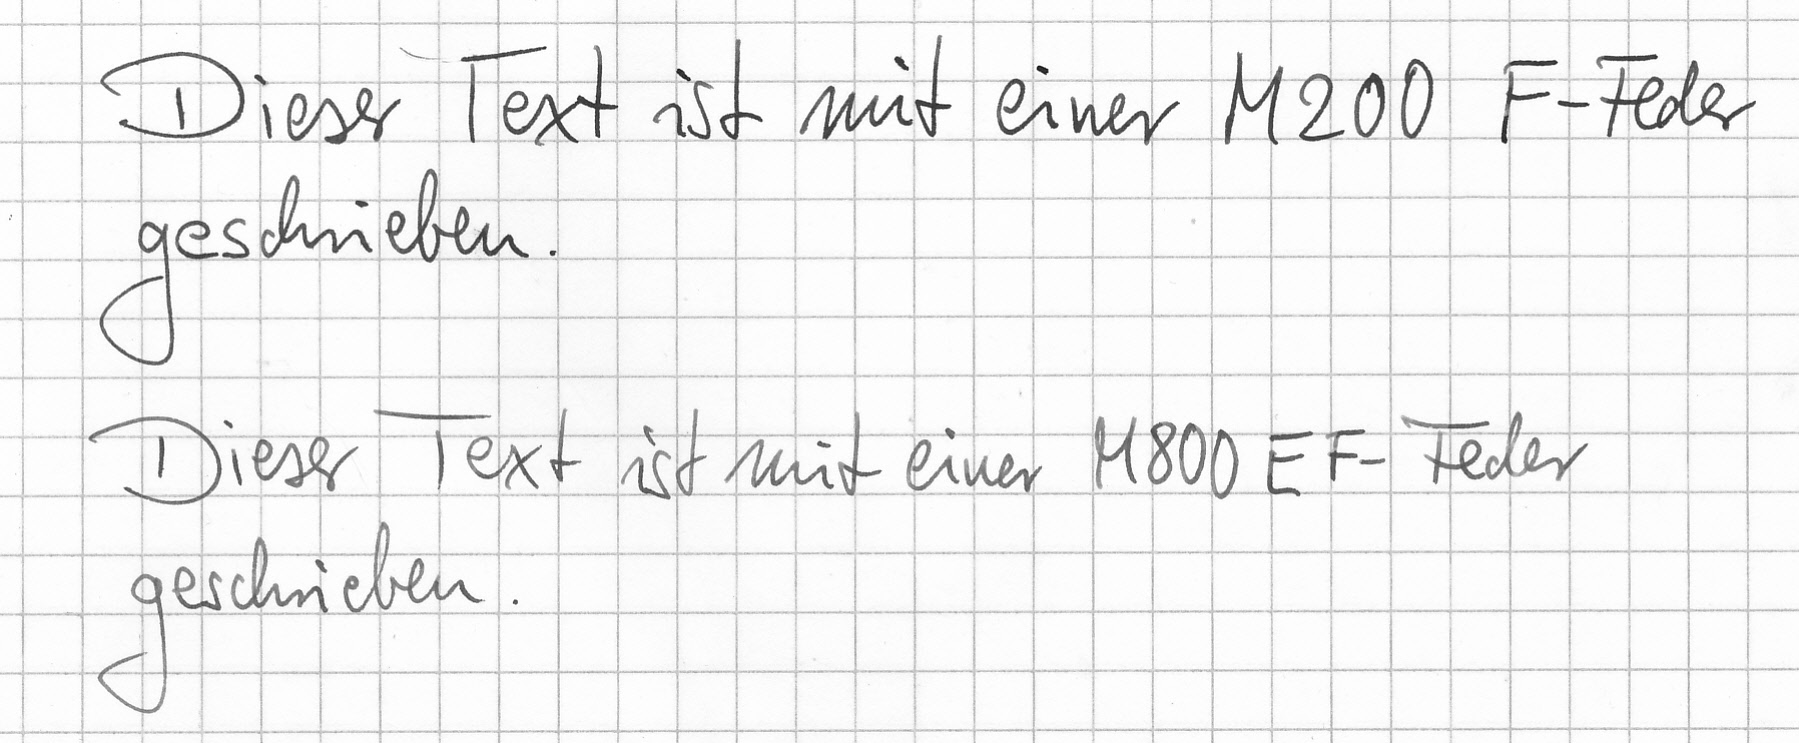 Dieser Text ist mit einer M200 F-Feder
geschrieben.
Dieser Text ist mit einer M800 EF-Feder
geschrieben.